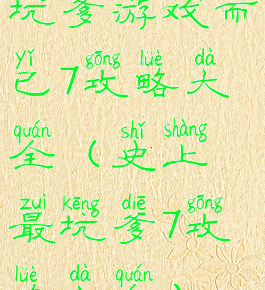 坑爹游戏而
yǐ gōng lüè dà
已7攻略大
quán shǐ shàng
全(史上
zuì kēng diē gōng
最坑爹7攻
lüè dà quán